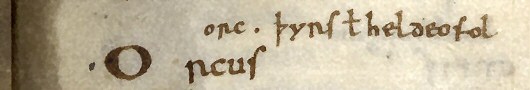 orc . þyrs ł heldeofol
. Orcus